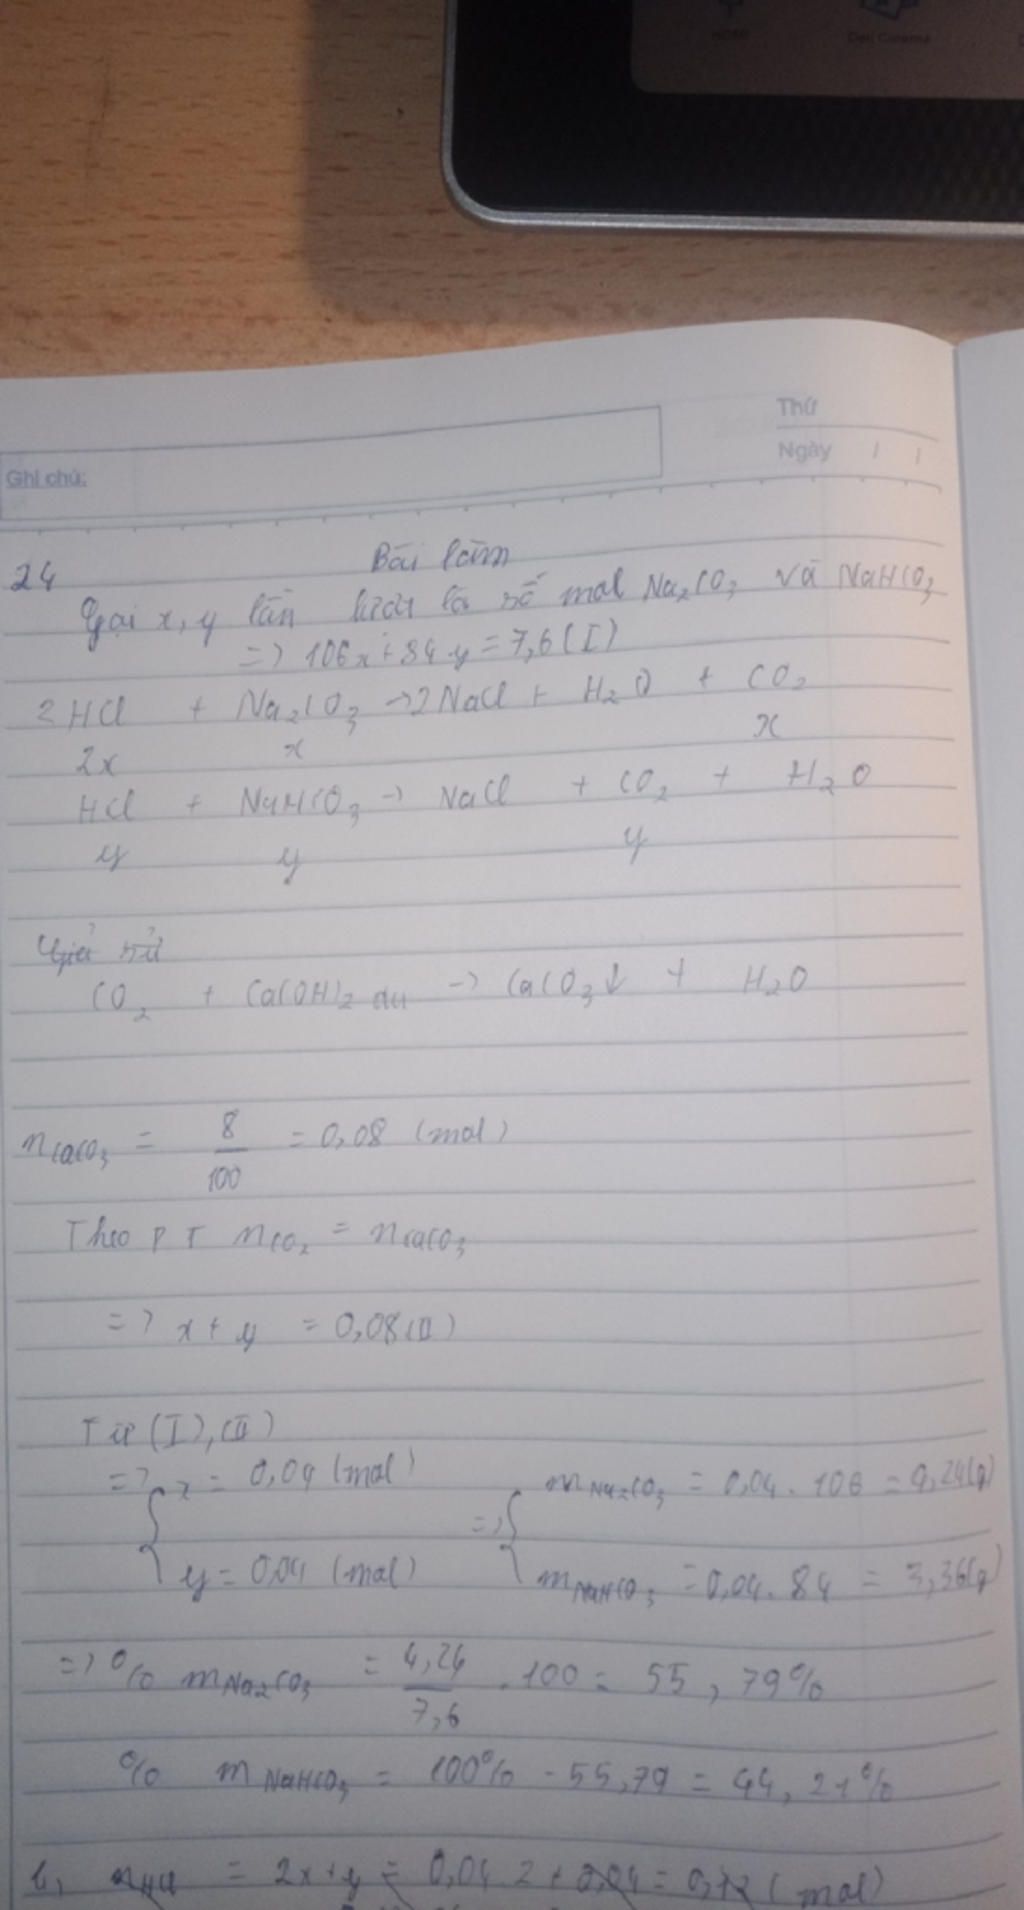 HDMI
Dell Cinema
Thứ
Ngày / /
Ghi chú:
Bài làm
24
Gọi x, y lần lượt là số mol Na₂CO₃ và NaHCO₃
=> 106x + 84y = 7,6 (I)
2HCl + Na₂CO₃ -> 2NaCl + H₂O + CO₂
2x x x
HCl + NaHCO₃ -> NaCl + CO₂ + H₂O
y y y
Giả sử
CO₂ + Ca(OH)₂ dư -> CaCO₃↓ + H₂O
nCaCO₃ = 8/100 = 0,08 (mol)
Theo PT nCO₂ = nCaCO₃
=> x + y = 0,08 (II)
Từ (I), (II)
=> { x = 0,04 (mol) => { mNa₂CO₃ = 0,04 . 106 = 4,24(g)
y = 0,04 (mol) mNaHCO₃ = 0,04 . 84 = 3,36(g)
=> % mNa₂CO₃ = 4,24/7,6 . 100 = 55,79%
% mNaHCO₃ = 100% - 55,79 = 44,21%
b, nHCl = 2x + y = 0,04 . 2 + 0,04 = 0,12 (mol)